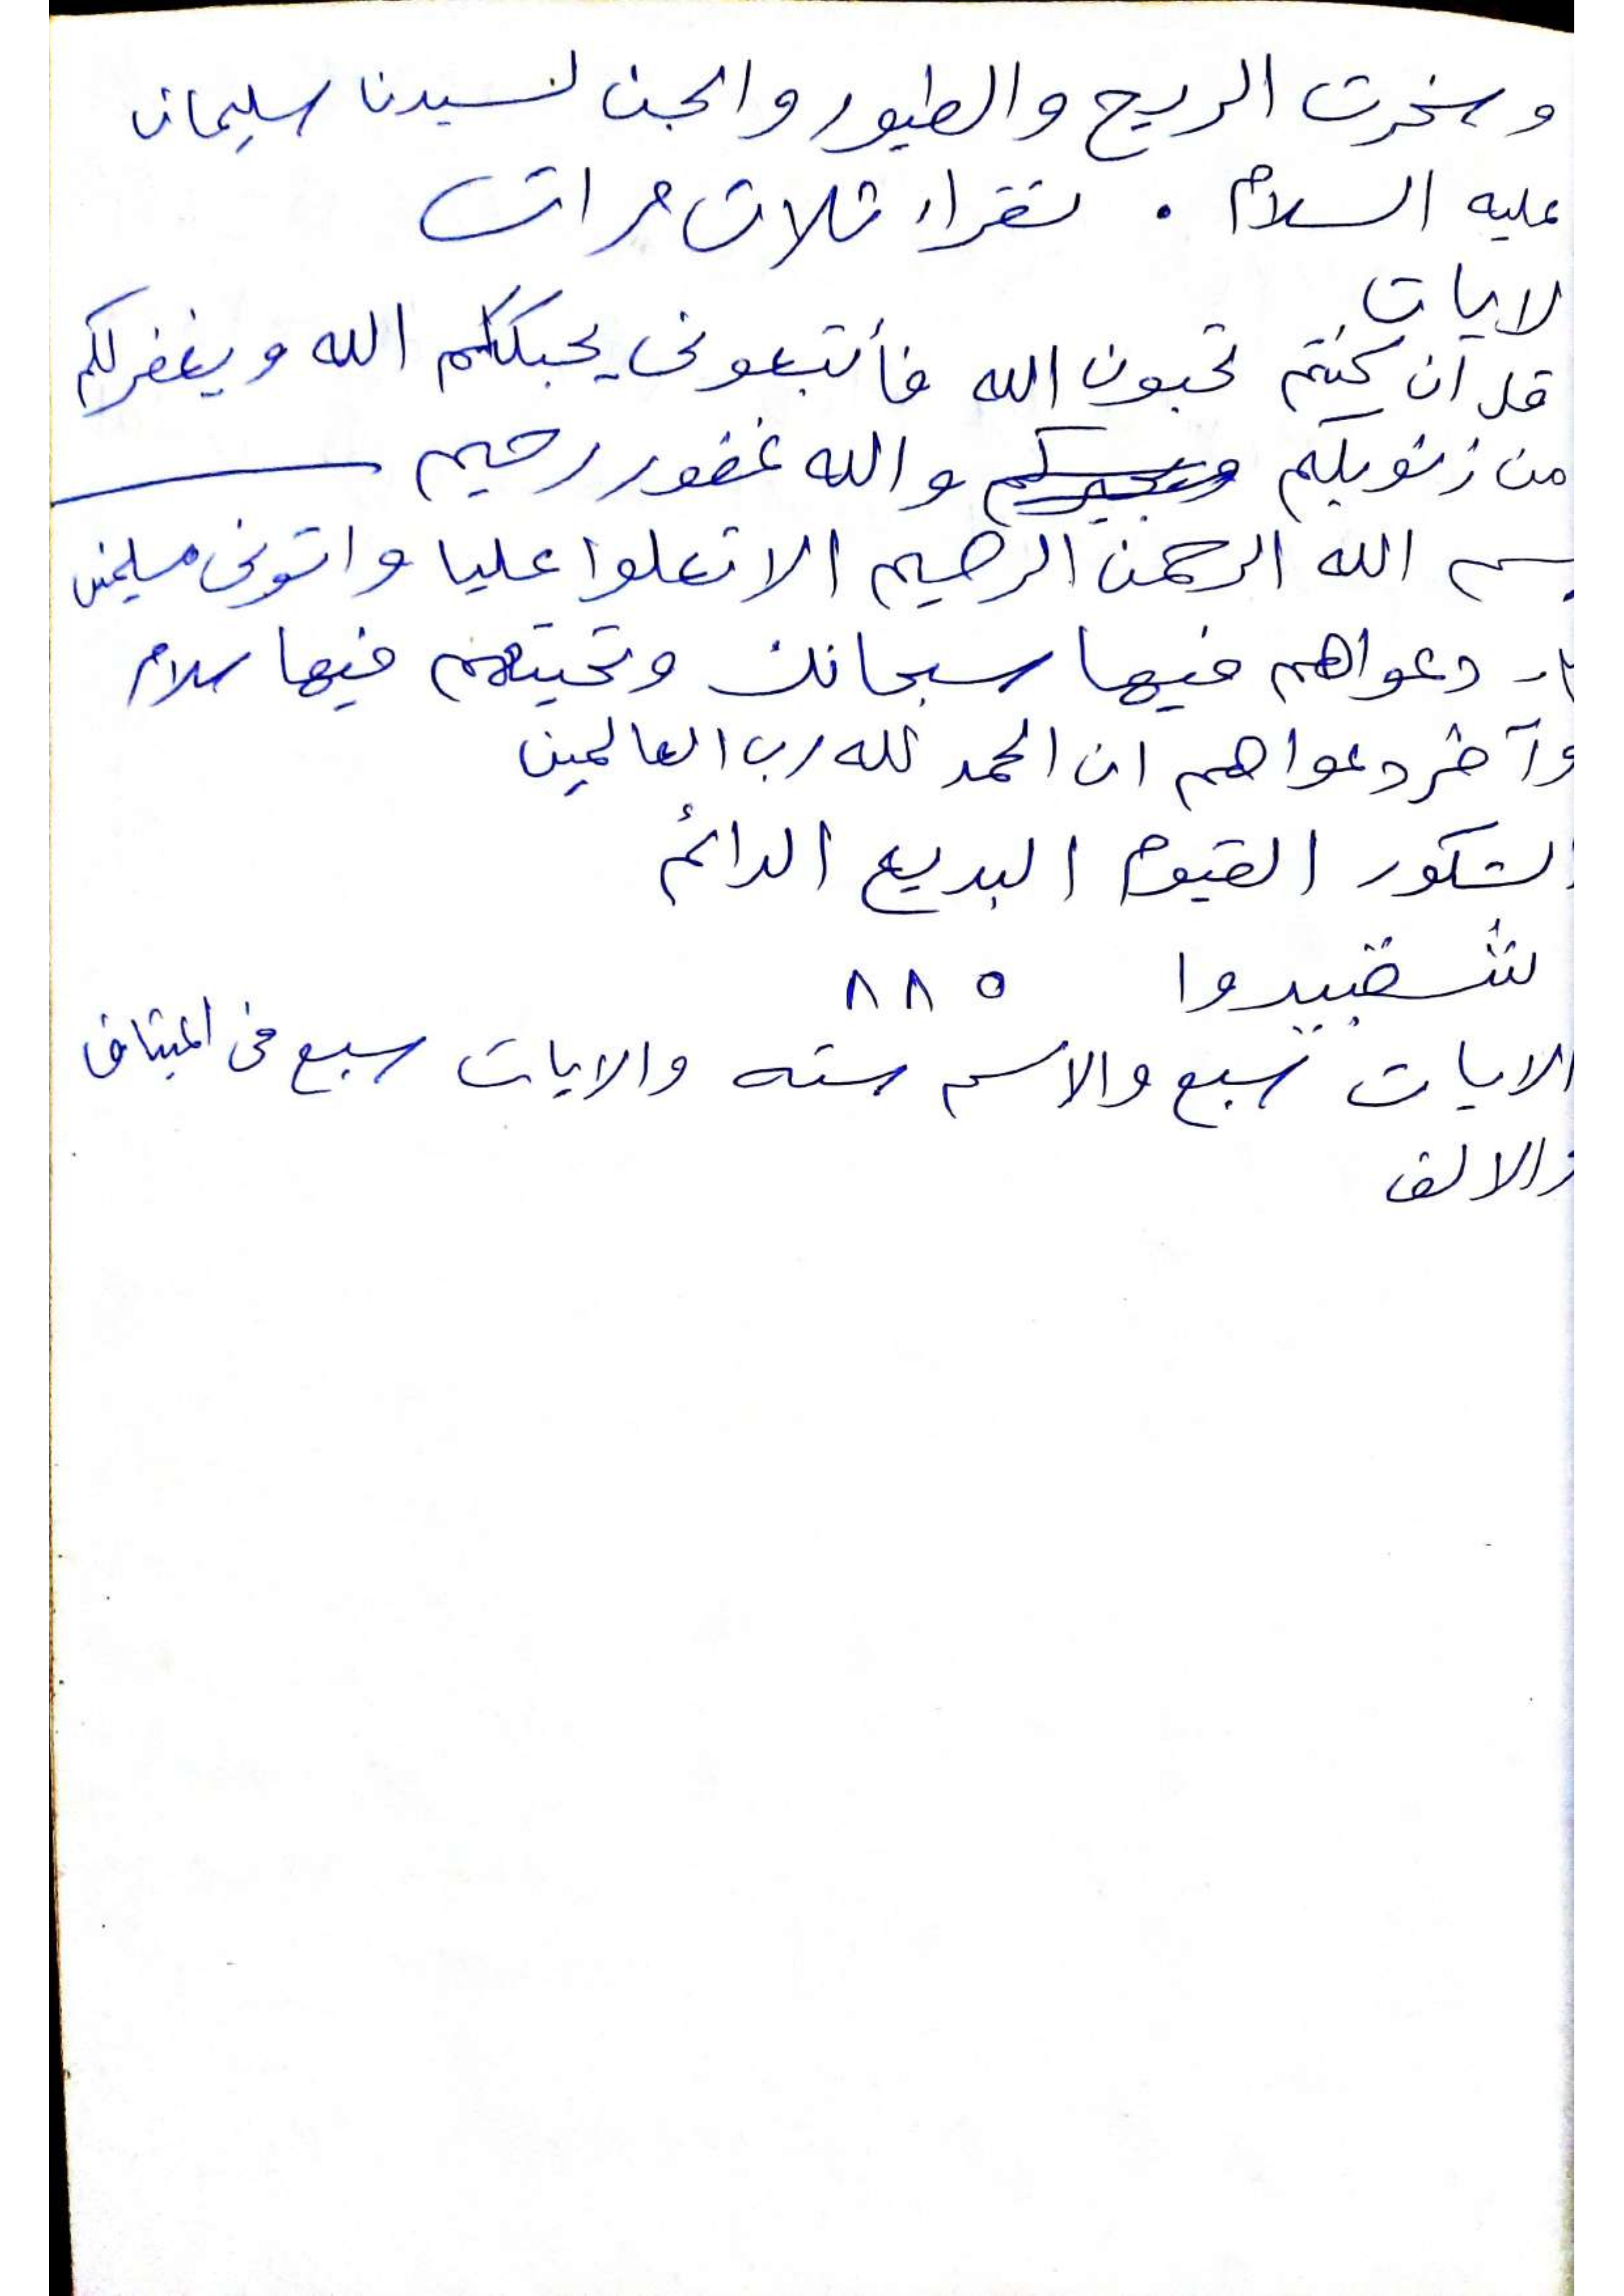 وسخرت الريح والطيور والجن لسيدنا سليمان
عليه السلام . تقراء ثلاث مرات
لايات
قل ان كنتم تحبون الله فأتبعونى يحببكم الله ويغفرلكم
من زنوبكم والله غفور رحيم
بسم الله الرحمن الرحيم الاتعلوا عليا واتونى مسلمين
دعواهم فيها سبحانك وتحيتهم فيها سلام
وآخر دعواهم ان الحمد لله رب العالمين
الشكور القيوم البديع الدائم
٨٨٥
الايات سبع والاسم سته والايات سبع فى الميثاق
والالف